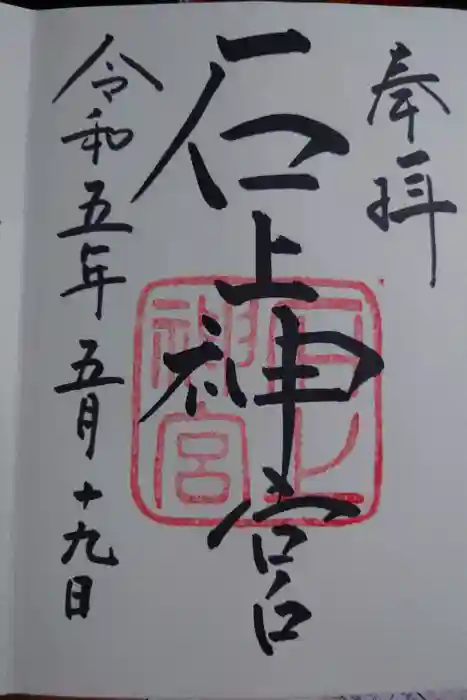 奉拝
石上神宮
令和五年五月十九日
石上
神宮